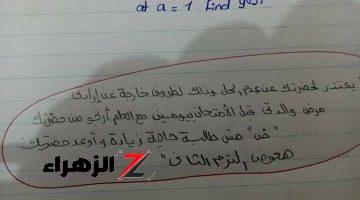 at a = 1 find y(5)
بعتذر لحضرتك عن عدم الحل وذلك لظروف خارجة عن إرادتي
مرض والدتي قبل الأمتحان بيومين مع العلم أرجو من حضرتك
مش طالبة حاجة زيادة وأوعد حضرتك
هعوض الترم الثانى"
الزهراء